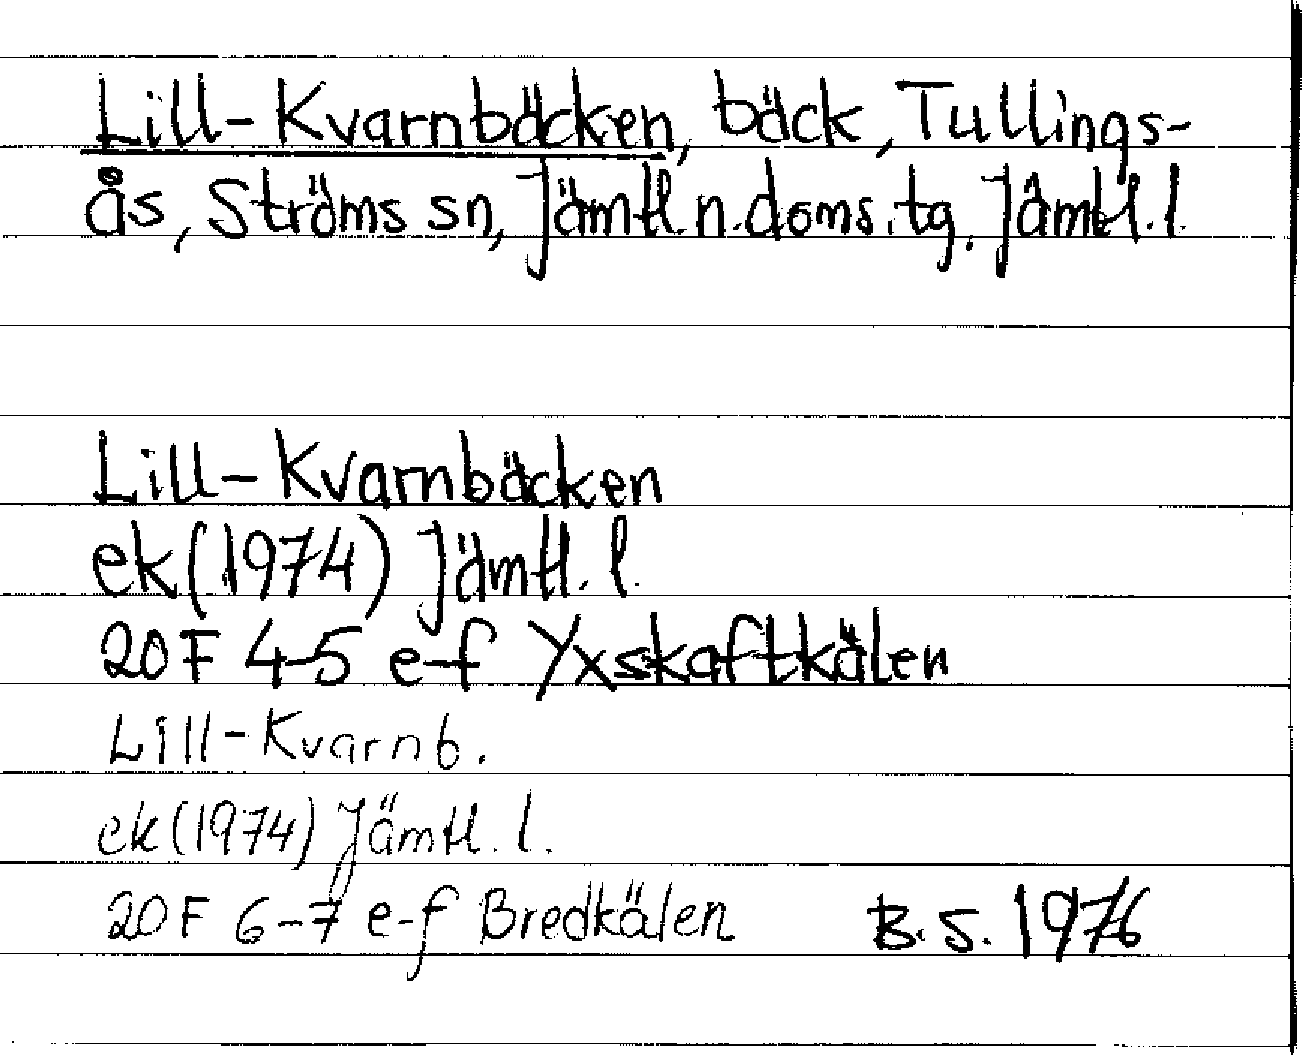 Lill-Kvarnbäcken, bäck, Tullings-
ås, Ströms sn, Jämtl. n. doms. tg. Jämtl. l.
Lill-Kvarnbäcken
ek (1974) Jämtl. l.
20 F 4-5 e-f Yxskaftkälen
Lill-Kvarnb.
ek (1974) Jämtl. l.
20 F 6-7 e-f Bredkälen B. S. 1976